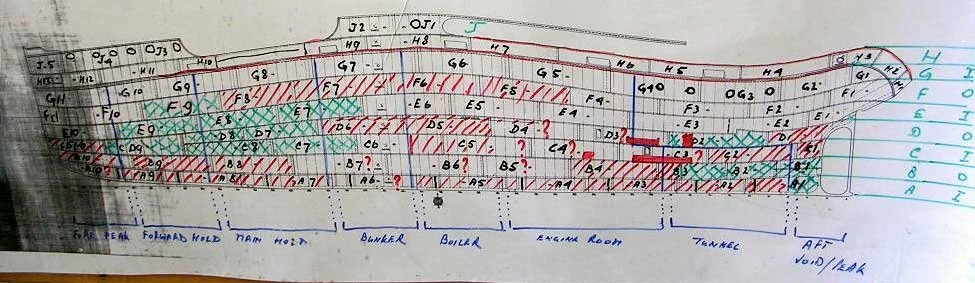 J2 OJ1 J
H9 H8 H7 H6 H5 H4 H3 H2 H
J.5 J4 J3
H13 H12 H11 H10
G10 G9 G8 G7 G6 G5 G4 G3 G2 G1 G I
GH F10 F9 F8 F7 F6 F5 F4 F3 F2 F1 F O
E9 E8 E7 E6 E5 E4 E3 E2 E1 E I
E10 D9 D8 D7 D6 D5 D4? D3? D2 D1 D O
C8 C7 C6 C5 C4? C3? C2 C1 C I
B9 B8 B7? B6? B5? B4 B3 B2 B1 B O
A10 A9 A8 A7 A6? A5 A4 A3 A2 A1 A I
FORE PEAK FORWARD HOLD MAIN HOLD BUNKER BOILER ENGINE ROOM TUNNEL AFT
VOID/PEAK